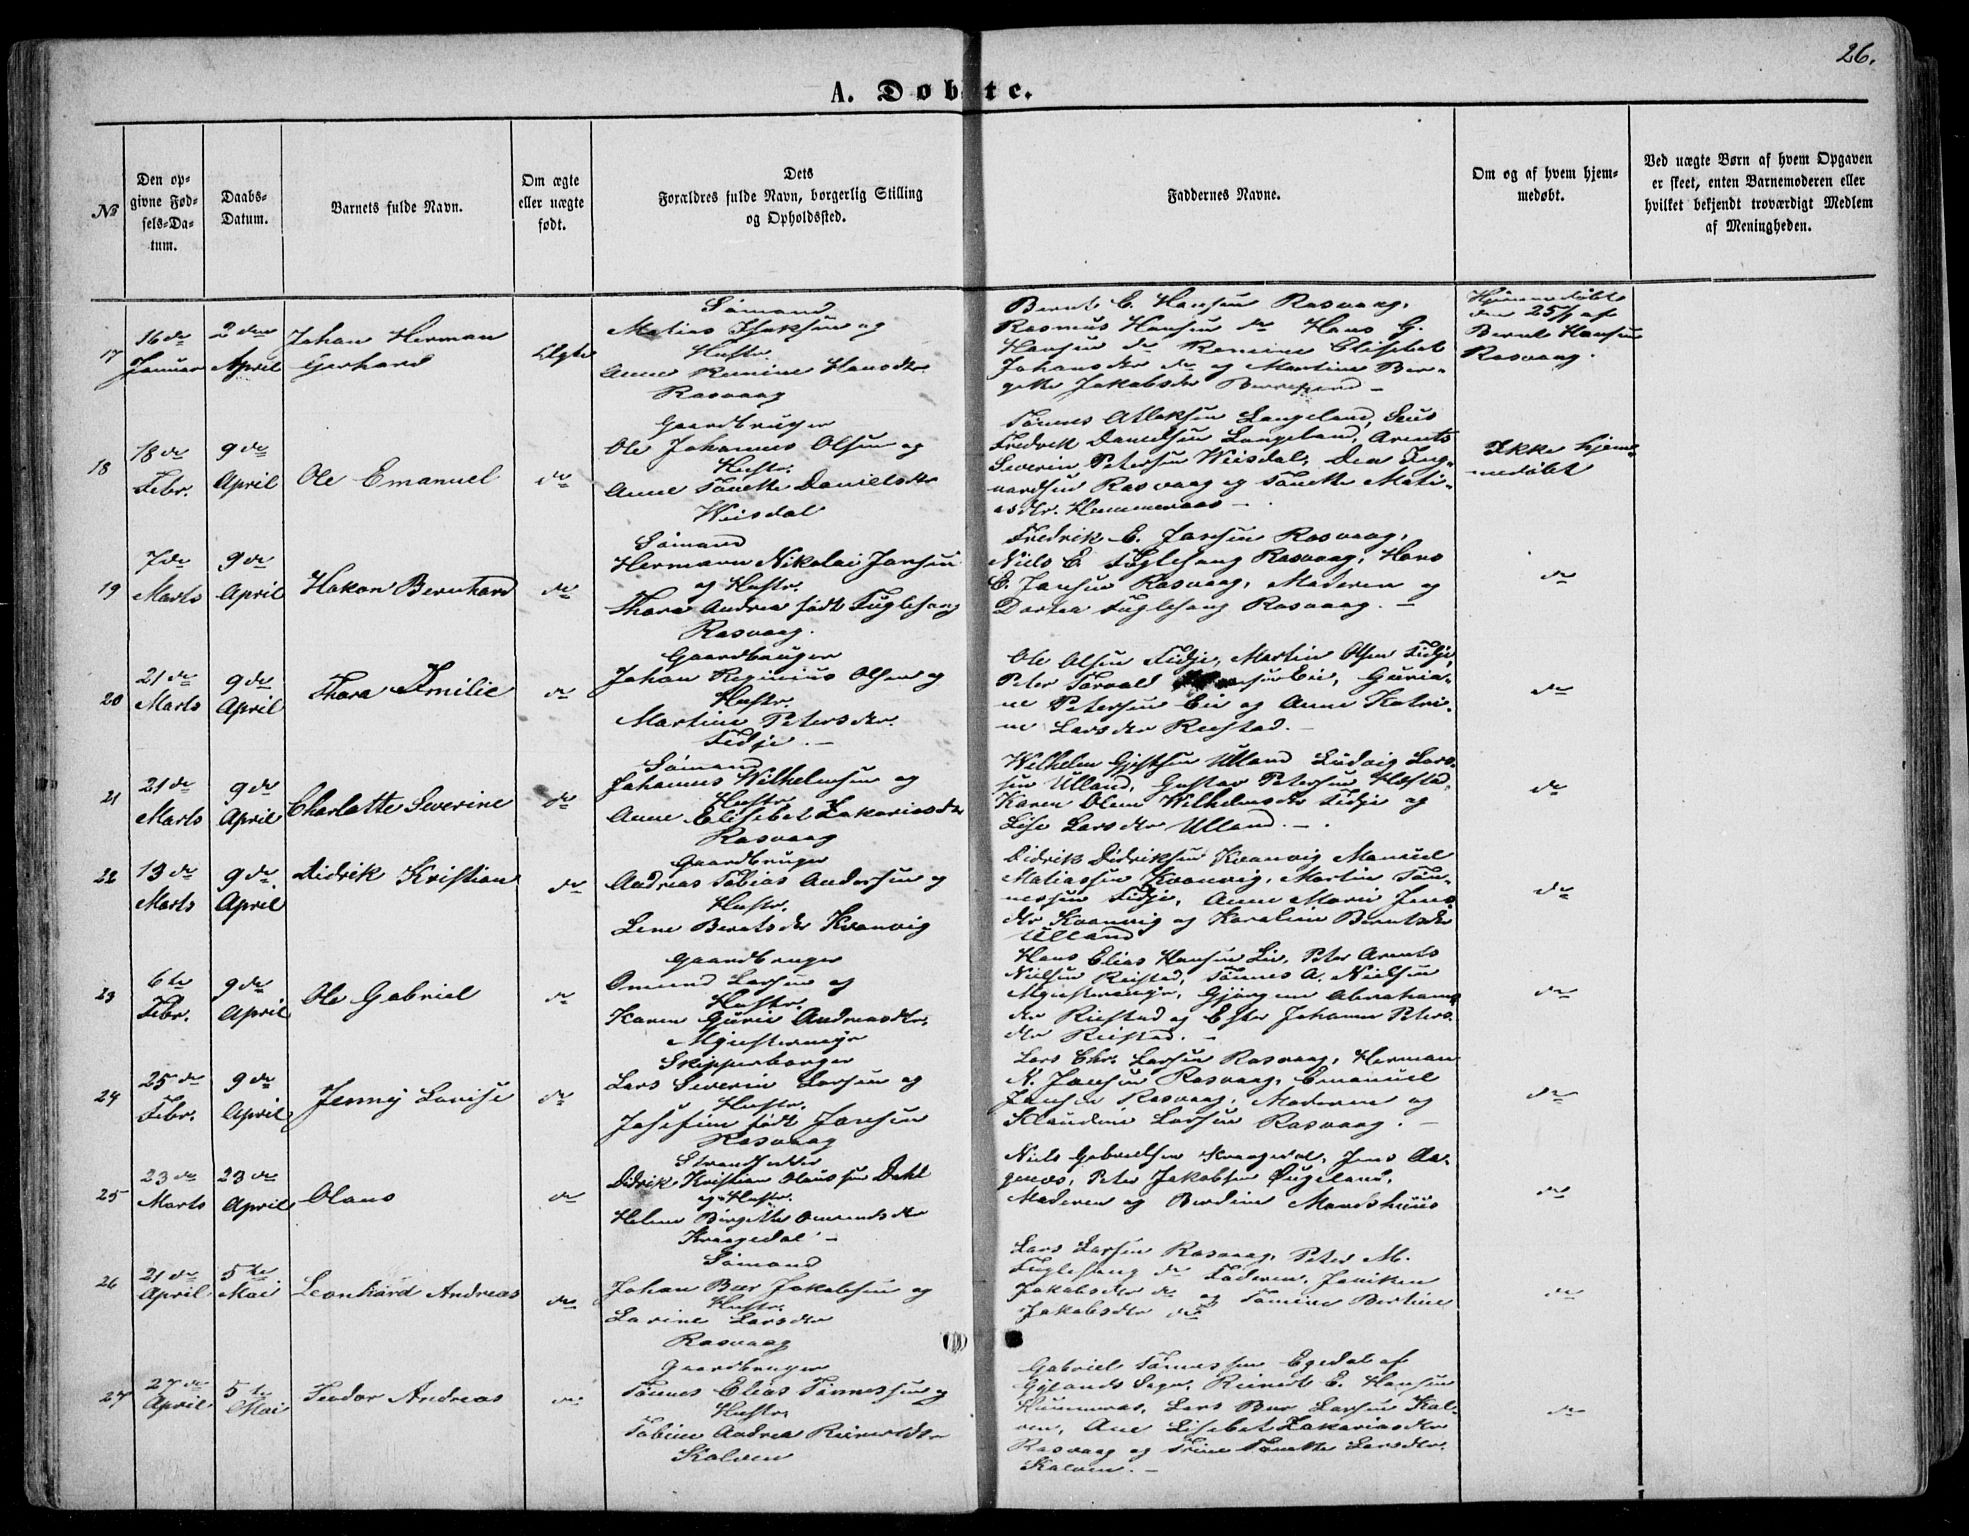 26.
A. Døbte.
№
Den opgivne Fødsels-Datum.
Daabs-Datum.
Barnets fulde Navn.
Om ægte eller uægte født.
Dets Forældres fulde Navn, borgerlig Stilling og Opholdssted.
Faddernes Navne.
Om og af hvem hjemmedøbt.
Ved uægte Børn af hvem Opgaven er skeet, enten Barnemoderen eller hvilket bekjendt troværdigt Medlem af Menigheden.
17
16de Januar
2den April
Johan Herman
Gerhard
Ægte
Sømand
Matias Isaksen og
Hustr.
Anne Remine Hansdtr
Rasvaag
Bernt E. Hansen Rasvaag,
Rasmus Hansen do Hans G.
Hansen do Remine Elisebet
Johansdtr do og Martine Ber-
gitte Jakobsdtr
Hjemmedøbt
den 25/1 af
Bernt Hansen
Rasvaag.
18
18de Febr.
9de April
Ole Emanuel
do
Gaardbruger
Ole Johannes Olsen og
Hustr.
Anne Tonette Danielsdtr
Weisdal
Tønnes Atlaksen Langeland,
Fredrik Danielsen Langeland, Arents
Severin Petersen Weisdal,
Rasvaag og Tonette Mati-
asdtr. Hummeraas —
Ikke hjem-
medøbt
19
7de Marts
9de April
Hakon Bernhard
do
Sømand
Hermann Nikolai Jansen
og Hustr.
Thora Andrea født Fuglesang
Rasvaag.
Fredrik E. Jansen Rasvaag,
Niels E. Fuglesang Rasvaag, Hans
E. Jansen Rasvaag, Moderen og
Dortea Fuglesang Rasvaag. —
do
20
21de Marts
9de April
Thora Emilie
do
Gaardbruger
Johan Reginius Olsen og
Hustr.
Martine Petersdtr.
Fidje. —
Ole Olsen Fidje, Martin Olsen Fidje,
Peter Torvald Eie, Guria-
ne Petersen Eie og Anne Katri-
ne Larsdtr Reistad. —
do
21
21de Marts
9de April
Charlotte Severine
do
Sømand
Johannes Wilhelmsen og
Hustr.
Anne Elisebet Zakariasdtr
Rasvaag
Wilhelm Gjertsen Ulland Ludvig Lars-
sen Ulland, Gustav Petersen
Karen Olene Wilhelmsdtr Fidje og
Lise Larsdtr Ulland. —
do
22
13de Marts
9de April
Didrik Kristian
do
Gaardbruger
Andreas Tobias Andersen og
Hustr.
Lene Berntsdtr Kvanvig
Didrik Didriksen Kvanvig Manuel
Matiassen Kvanvig, Martin Tøn-
nessen Fidje, Anne Marie Jens-
dtr Kvanvig og Karoline Berntsdtr
Ulland
do
23
6te Febr.
9de April
Ole Gabriel
do
Gaardbruger
Omund Larsen og
Hustr.
Karen Gurie Andreasdtr.
Hans Elias Hansen Lie, Peter Arents
Nielsen Reistad, Tønnes A. Nielsen
Abrahams-
dtr Reistad og Ester Johanne Peters-
dtr Reistad. —
do
24
25de Febr.
9de April
Jenny Lovise
do
Skipperborger
Lars Severin Larsen og
Hustr.
Josefine født Jansen
Rasvaag
Lars Chr. Larsen Rasvaag, Herman
N. Jansen Rasvaag, Emanuel
Jansen Rasvaag, Moderen og
Klaudine Larsen Rasvaag. —
do
25
23de Marts
23de April
Olaus
do
Strandsidder
Didrik Kristian Olaussen Dahl
og Hustr.
Helene Birgitte Omundsdtr
Kraagedal —
Niels Gabrielsen Kraagedal, Jens Aa-
genæs, Peter Jakobsen Øugeland,
Moderen og Berdine Mandshuus
do
26
21de April
5te Mai
Leonhard Andreas
do
Sømand
Johan Bær Jakobsen og
Hustr.
Lovine Larsdtr
Rasvaag
Lars Larsen Rasvaag, Peter M.
Fuglesang do Faderen, Janiken
Jakobsdtr do og Tomine Bertine
Jakobsdtr do
do
27
27de April
5te Mai
Teodor Andreas
do
Gaardbruger
Tønnes Elias Tønnessen og
Hustr.
Tobine Andrea Reinertsdtr
Kalven
Gabriel Tønnessen Egedal af
Gylands Sogn, Reinert E. Hansen
Hummeras, Lars Bær Larsen Kal-
ven, Ane Lisebet Zakariasdtr
Rasvaag og Trine Tonette Larsdtr.
Kalven. —
do